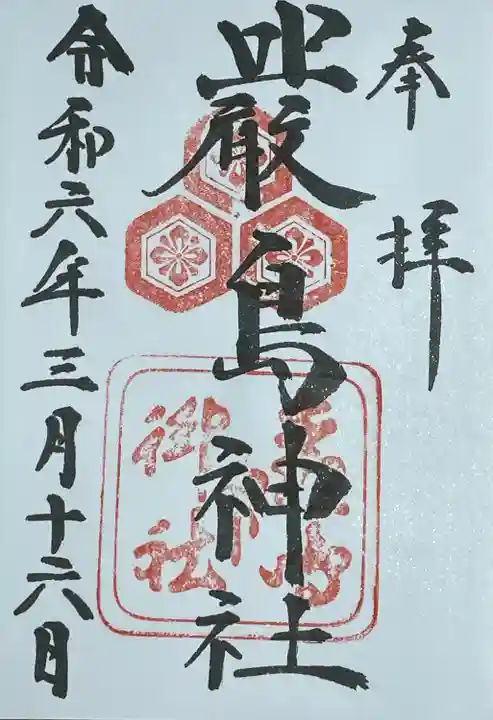 奉拝
嚴島神社
令和六年三月十六日